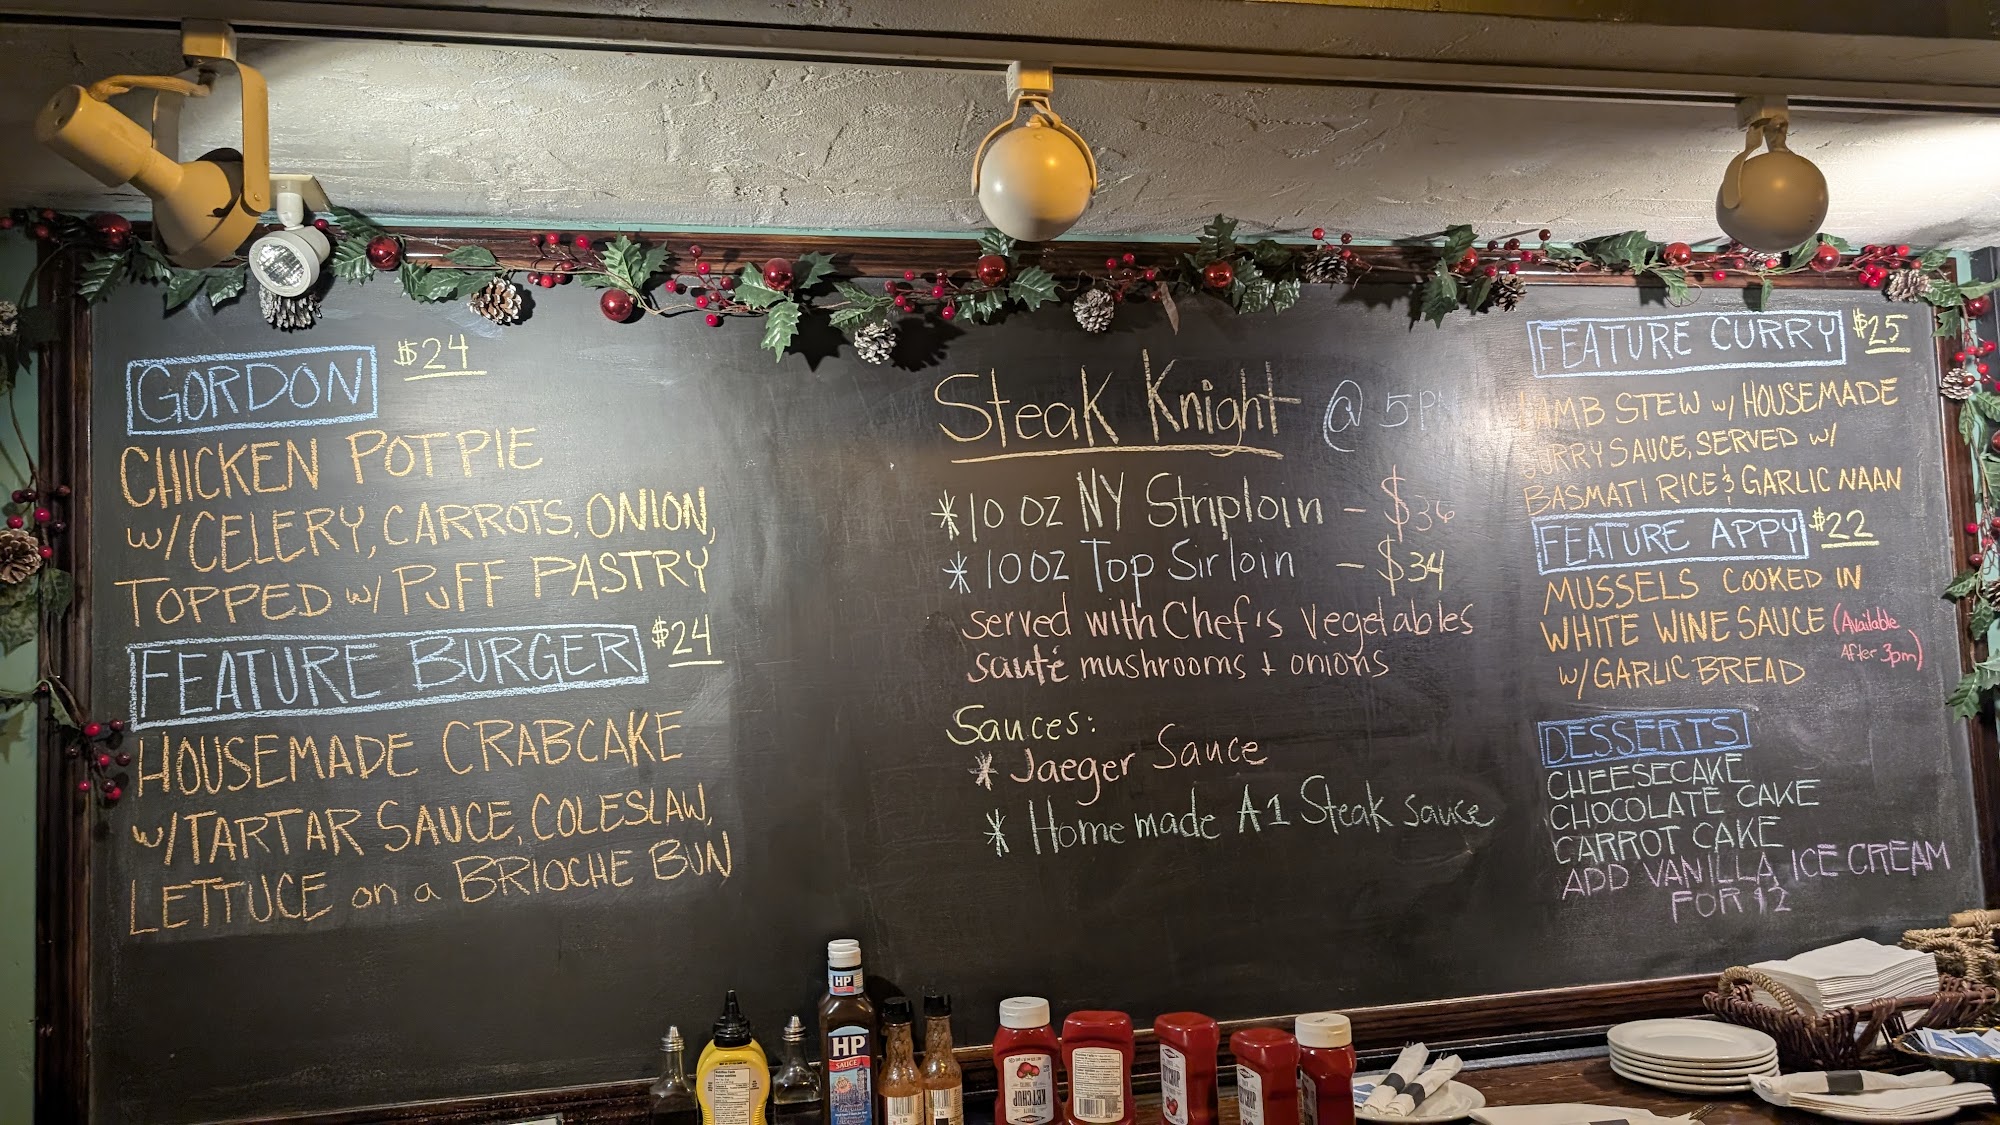 GORDON $24
CHICKEN POT PIE
w/ CELERY, CARROTS, ONION,
TOPPED w/ PUFF PASTRY
FEATURE BURGER $24
HOUSEMADE CRABCAKE
w/ TARTAR SAUCE, COLESLAW,
LETTUCE on a BRIOCHE BUN
Steak Knight @ 5PM
*10 OZ NY Striploin - $36
*10 OZ Top Sirloin - $34
served with Chef's vegetables
sauté mushrooms + onions
Sauces:
* Jaeger Sauce
* Home made A1 Steak sauce
FEATURE CURRY $25
LAMB STEW w/ HOUSEMADE
CURRY SAUCE, SERVED w/
BASMATI RICE & GARLIC NAAN
FEATURE APPY $22
MUSSELS COOKED IN
WHITE WINE SAUCE (Available
After 3pm)
w/ GARLIC BREAD
DESSERTS
CHEESECAKE
CHOCOLATE CAKE
CARROT CAKE
ADD VANILLA ICE CREAM
FOR $2
HP
HP
SAUCE
KETCHUP
KETCHUP